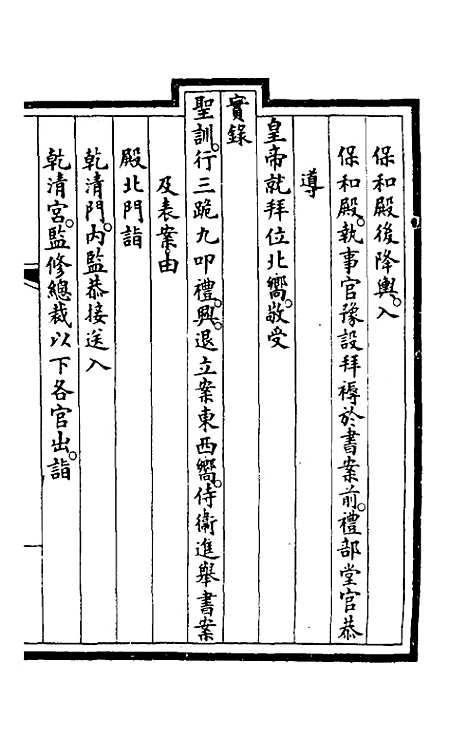 保和殿後降輿。入
保和殿。執事官豫設拜褥於書案前。禮部堂官恭
導
皇帝就拜位北嚮。敬受
實錄
聖訓。行三跪九叩禮。興。退立案東西嚮。侍衞進舉書案
及表案由
殿北門詣
乾清門。內監恭接送入
乾清宮。監修總裁以下各官出。詣